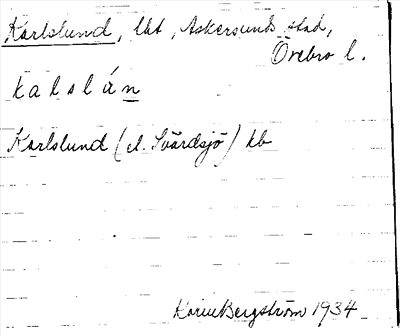 Karlslund, lht, Askersunds stad,
Örebro l.
kalslán
Karlslund (el. Svärdsjö) kb
Karin Bergström 1934